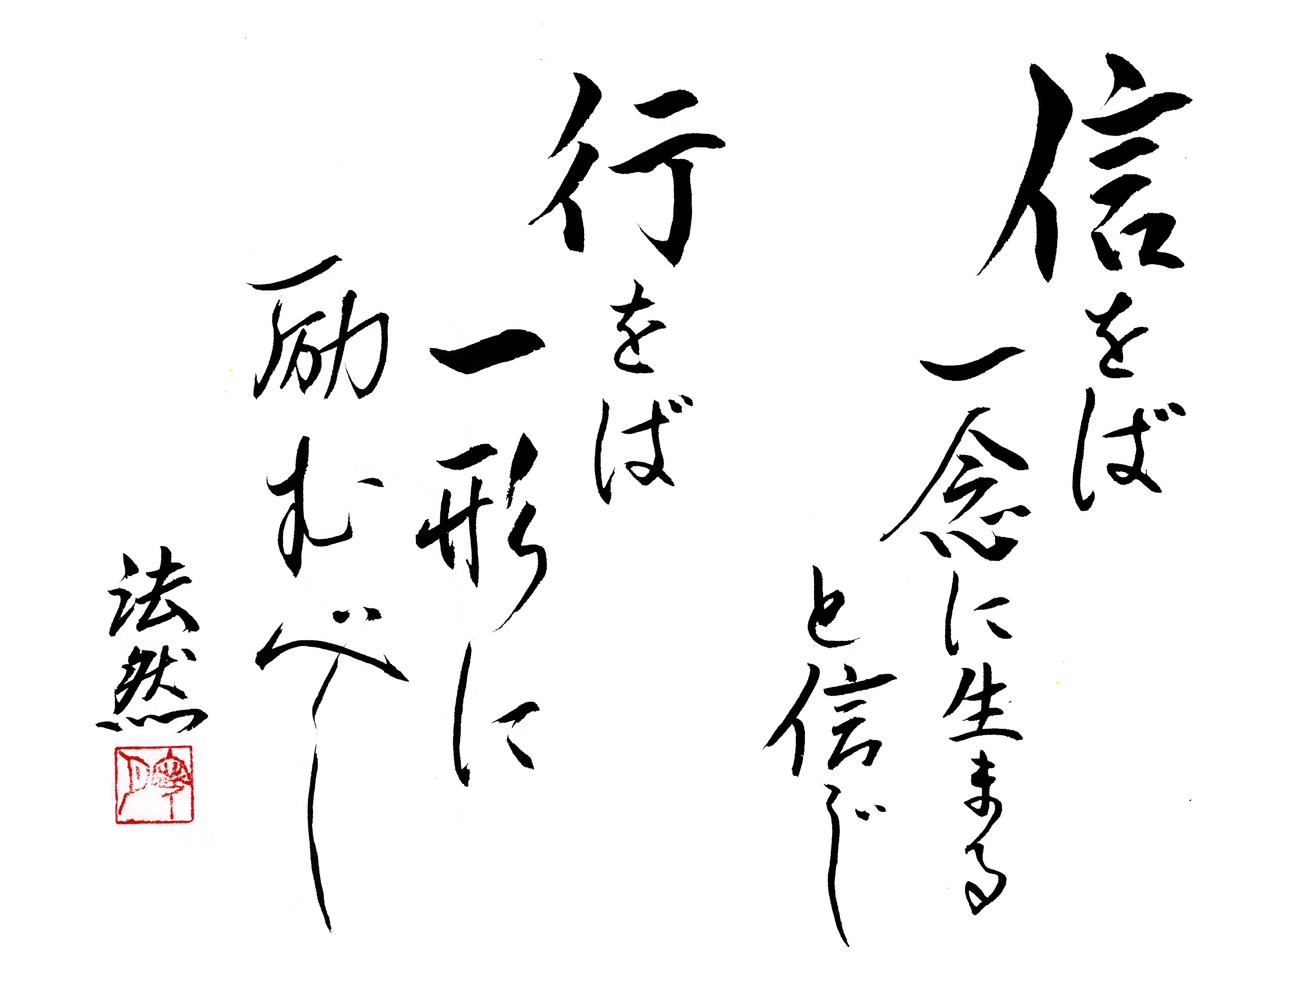 信をば
一念に生まる
と信じ
行をば
一形に
励むべし
法然